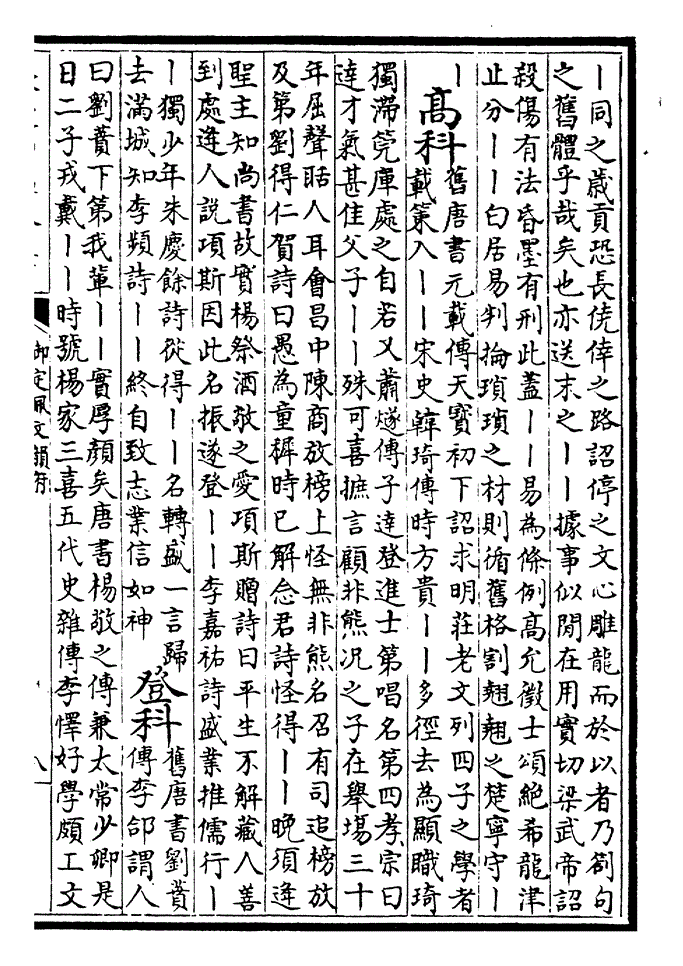 ｜同之歲貢恐長僥倖之路詔停之文心雕龍而於以者乃劄句
之舊體乎哉矣也亦送末之｜｜據事似閒在用實切梁武帝詔
殺傷有法昏墨有刑此蓋｜｜易為條例高允徵士頌絶希龍津
止分｜｜白居易判掄瑣瑣之材則循舊格割翹翹之楚寧守｜
｜
高科
舊唐書元載傳天寶初下詔求明莊老文列四子之學者
載策入｜｜宋史韓琦傳時方貴｜｜多徑去為顯職琦
獨滯筦庫處之自若又蕭燧傳子逵登進士第唱名第四孝宗曰
逵才氣甚佳父子｜｜殊可喜摭言顧非熊况之子在舉塲三十
年屈聲聒人耳會昌中陳商放榜上怪無非熊名召有司追榜放
及第劉得仁賀詩曰愚為童穉時已解念君詩怪得｜｜晚須逢
聖主知尚書故實楊祭酒敬之愛項斯贈詩曰平生不解藏人善
到處逢人説項斯因此名振遂登｜｜李嘉祐詩盛業推儒行｜
｜獨少年朱慶餘詩從得｜｜名轉盛一言歸
去滿城知李頻詩｜｜終自致志業信如神
登科
舊唐書劉蕡
傳李郃謂人
曰劉蕡下第我輩｜｜實厚顔矣唐書楊敬之傳兼太常少卿是
日二子戎戴｜｜時號楊家三喜五代史雜傳李懌好學頗工文
御定佩文韻府
八